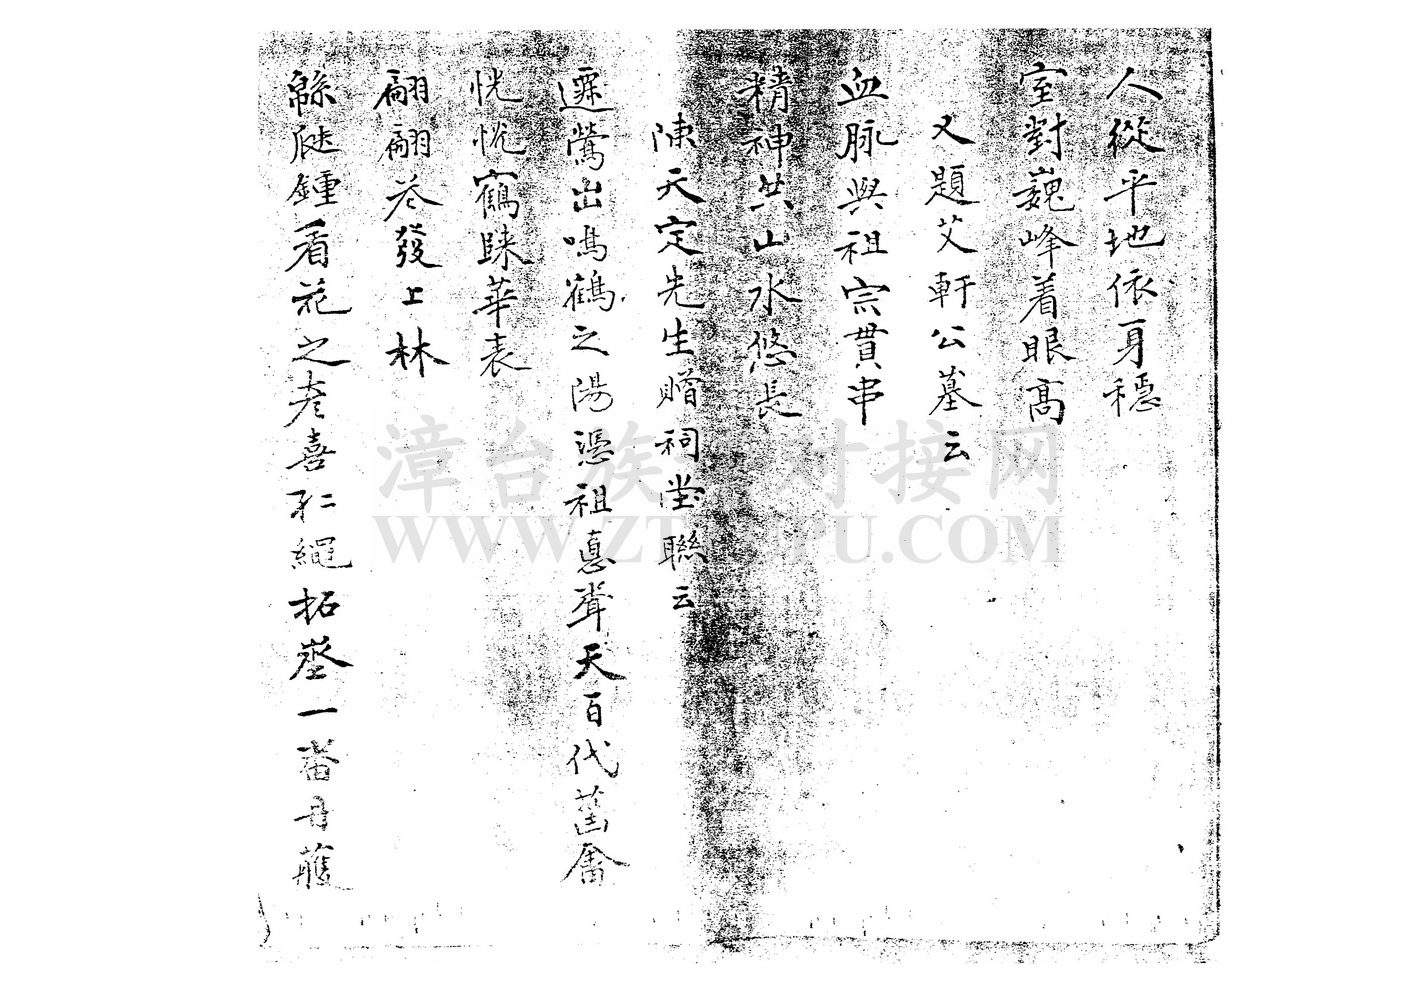 人從平地依身穩
室對巍峰着眼高
又題艾軒公墓云
血脉與祖宗貫串
精神共山水悠長
陳天定先生贈祠堂聯云
遷鶯出鳴鶴之陽憑祖德聲天百代舊畬
恍恍鶴睞華表
翩翩發上林
緜瓞鍾看花之彥喜仁繩拓一畨丹雘
漳台族 对接网
WWW.ZT PU.COM